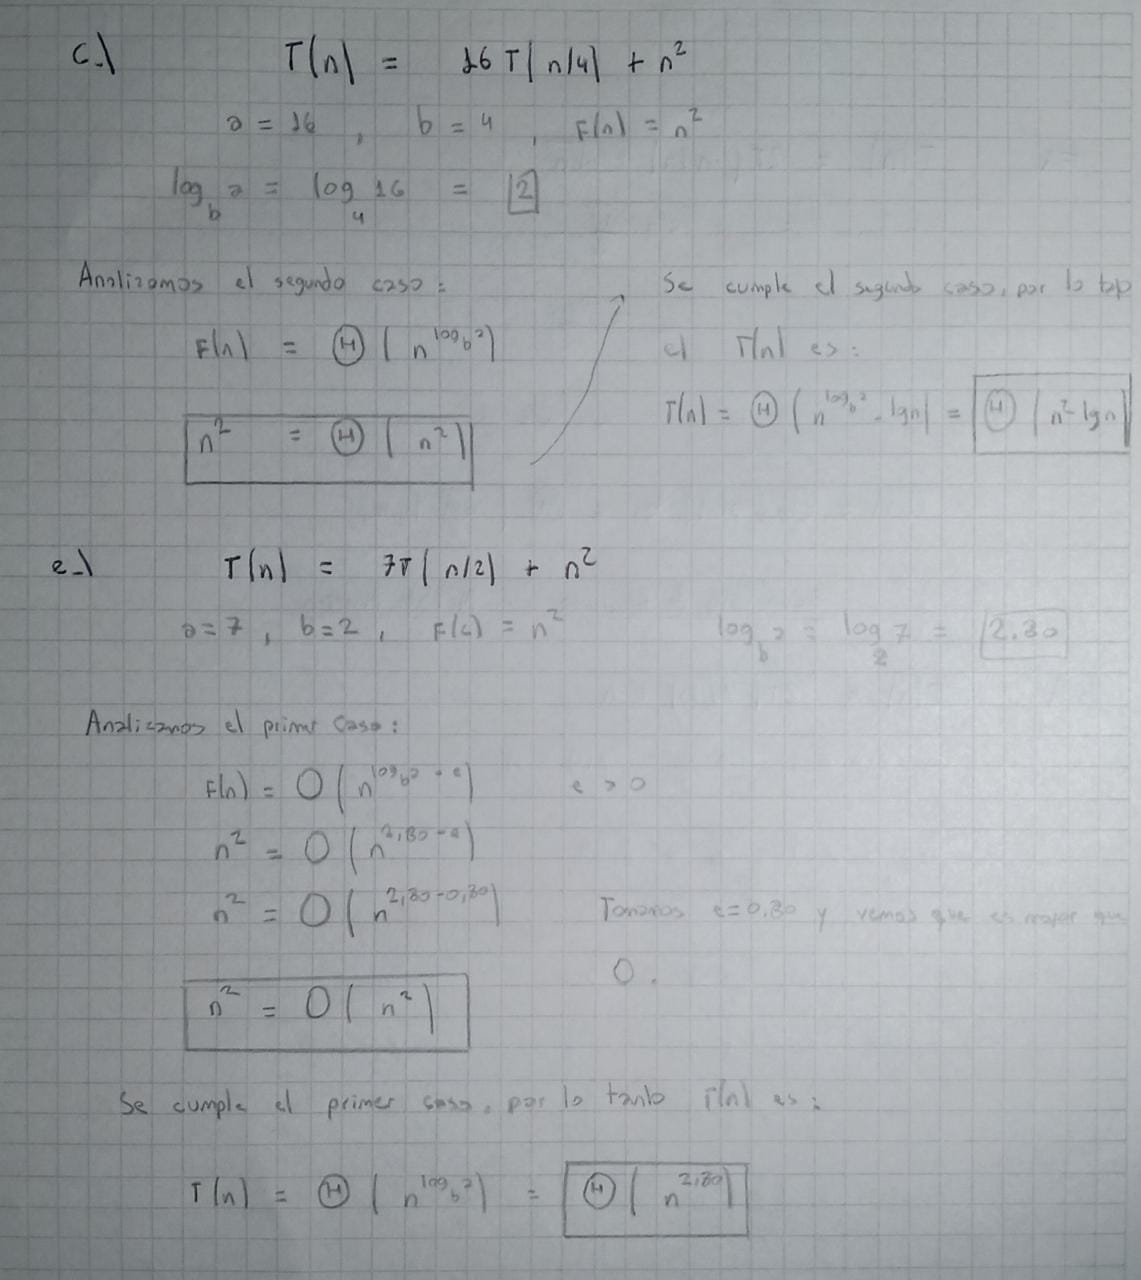 c.) T(n) = 16 T(n/4) + n²
a = 16 , b = 4 , F(n) = n²
log_b a = log_4 16 = 2
Analizamos el segundo caso:
F(n) = Θ ( n^(log_b a) )
n² = Θ ( n² )
Se cumple el segundo caso, por lo
el T(n) es:
T(n) = Θ ( n^(log_b a) . lgn ) = Θ ( n² lgn )
e.) T(n) = 7T(n/2) + n²
a=7 , b=2 , F(c) = n²
log_b a = log_2 7 = 2.80
Analizamos el primer caso:
F(n) = O ( n^(log_b a - e) ) e > 0
n² = O ( n^(2,80 - e) )
n² = O ( n^(2,80-0,80) )
Tomamos e=0.80 y vemos que es mayor que
0.
n² = O ( n² )
Se cumple el primer caso, por lo tanto T(n) es:
T(n) = Θ ( n^(log_b a) ) = Θ ( n^(2,80) )